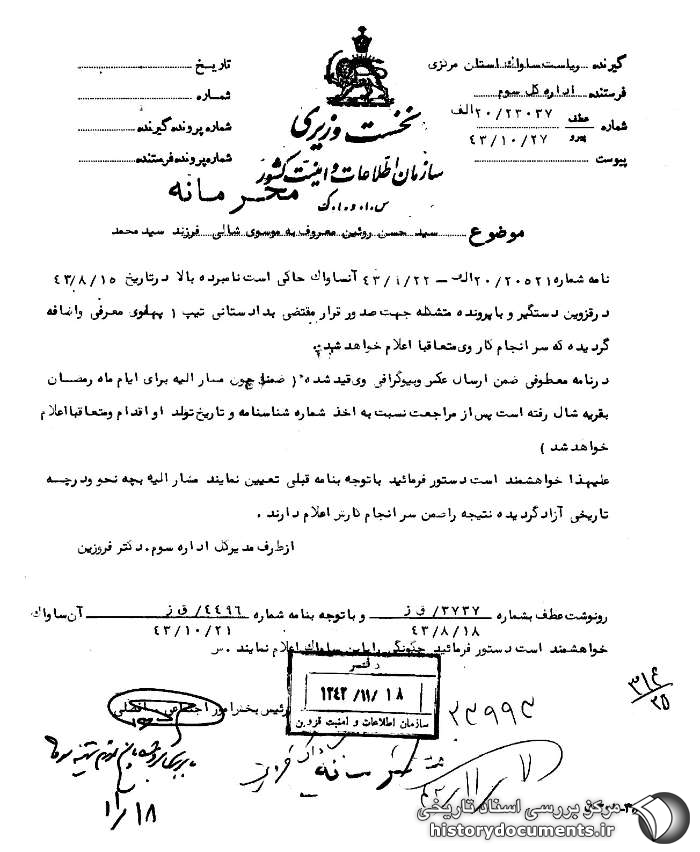 گیرنده ریاست ساواك استان مرکزی
فرستنده اداره کل سوم
شماره عطف پیرو ۲۰/۲۳۰۳۷الف
۴۳/۱۰/۲۷
پیوست
نخست وزیری
سازمان اطلاعات و امنیت کشور
س.ا.و.ا.ك
محرمانه
تاریخ
شماره
شماره پرونده گیرنده
شماره پرونده فرستنده
موضوع سید حسن روئین معروف به موسوی شالی فرزند سید محمد
نامه شماره ۲۰/۲۰۵۲۱الف – ۴۳/۹/۲۲ آنساواك حاکی است نامبرده بالا در تاریخ ۴۳/۸/۱۵
در قزوین دستگیر و با پرونده متشکله جهت صدور قرار مقتضی بدادستانی تیپ ۱ پهلوی معرفی واضافه
گردیده که سرانجام کار وی متعاقبا اعلام خواهد شد.
در نامه معطوفی ضمن ارسال عکس وبیوگرافی وی قید شده (ضمنا چون مشارالیه برای ایام ماه رمضان
بقریه شال رفته است پس از مراجعت نسبت به اخذ شماره شناسنامه و تاریخ تولد او اقدام ومتعاقبا اعلام
خواهد شد )
علیهذا خواهشمند است دستور فرمائید با توجه بنامه قبلی تعیین نمایند مشارالیه بچه نحو ودرچه
تاریخی آزاد گردیده نتیجه را ضمن سرانجام کارش اعلام دارند .
ازطرف مدیرکل اداره سوم. دکتر فروزین
رونوشت عطف بشماره ۳۷۳۷/ ق ز و با توجه بنامه شماره ۴۴۹۶/ ق ز آن ساواك
۴۳/۸/۱۸ ۴۳/۱۰/۲۱
خواهشمند است دستور فرمائید چگونگی را باین ساواك اعلام نمایند . س
رئیس بخش امور اجتماعی . افضلی
دفتر
۱۳۴۳/۱۱/۱۸
سازمان اطلاعات و امنیت قزوین
۳۱۴
۲۵
۲۳۹۹۳
۴۳/۱۱/۷
۱۱/۱۸
مرکز بررسی اسناد تاریخی
historydocuments.ir